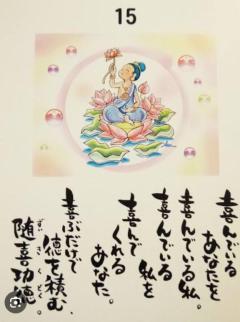 15
喜んでいる
あなたを
喜んでいる私。
喜んでいる
私を
喜んで
くれる
あなた。
喜ぶだけで
徳を積む、
随喜功徳
ずいきくどく